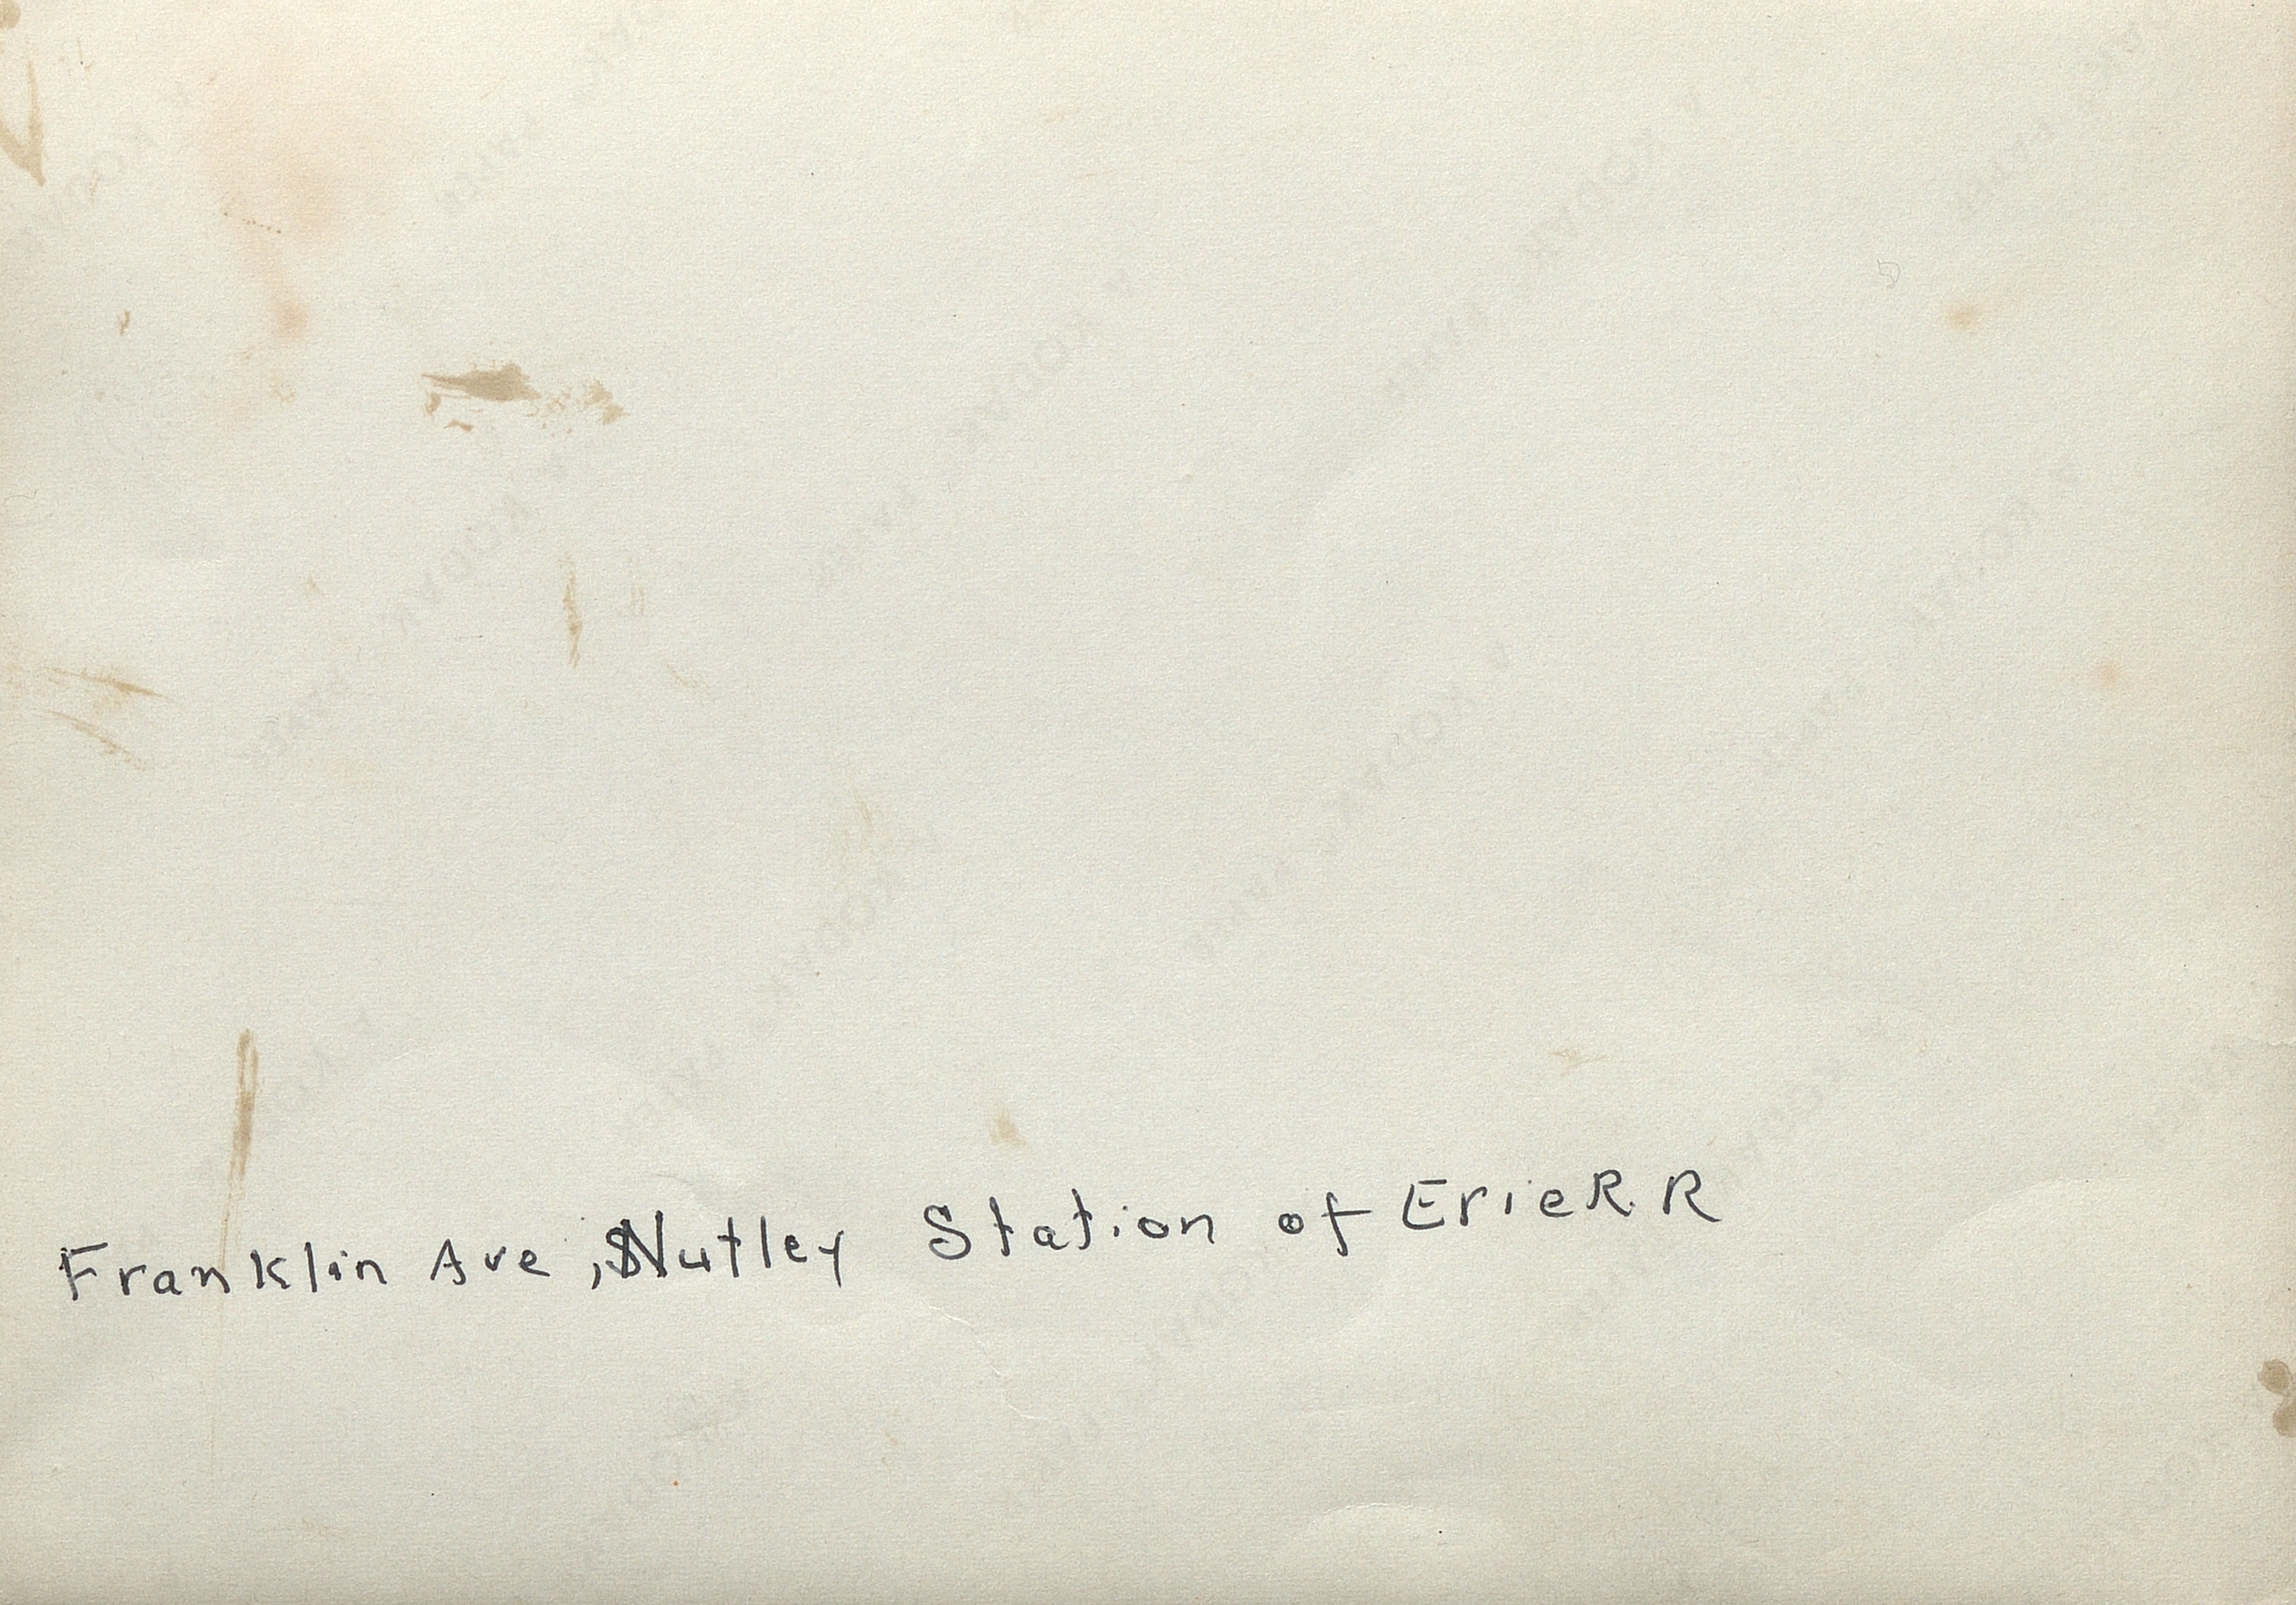 Franklin Ave, Nutley Station of Erie R.R